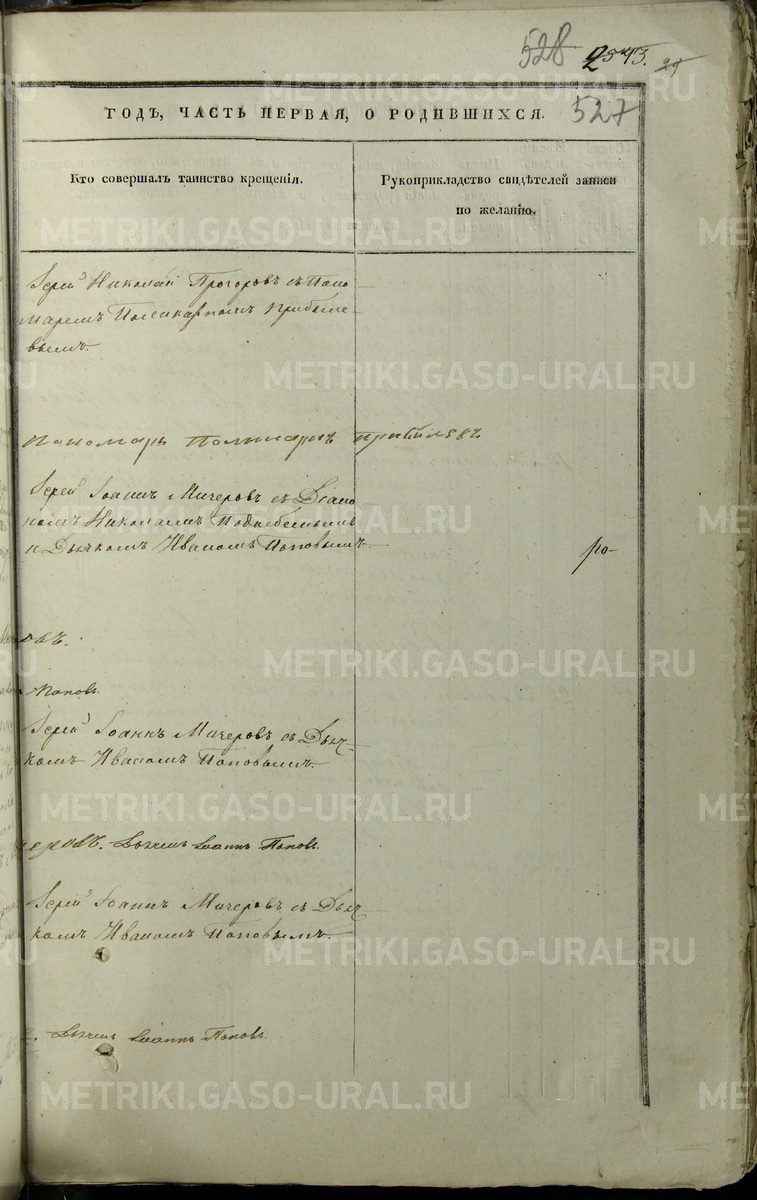 528 2543. 29
ГОДЪ, ЧАСТЬ ПЕРВАЯ, О РОДИВШИХСЯ. 527
Кто совершалъ таинство крещенія.
Рукоприкладство свидѣтелей записи
по желанію.
Іерей Николай Прогоровъ съ Поно
маремъ Поликарпомъ Прибыле-
вымъ.
Пономарь Поликарпъ Прибылевъ
Іерей Іоаннъ Мичеровъ съ Діако
номъ Николаемъ
и Дьячкомъ Иваномъ Поповымъ
ро-
овъ.
Поповъ
Іерей Іоаннъ Мичеровъ съ Дьяч-
комъ Иваномъ Поповымъ.
черовъ. Дьячекъ Іоаннъ Поповъ.
Іерей Іоаннъ Мичеровъ съ Дьяч
комъ Иваномъ Поповымъ.
Дьячекъ Іоаннъ Поповъ.
METRIKI.GASO-URAL.RU